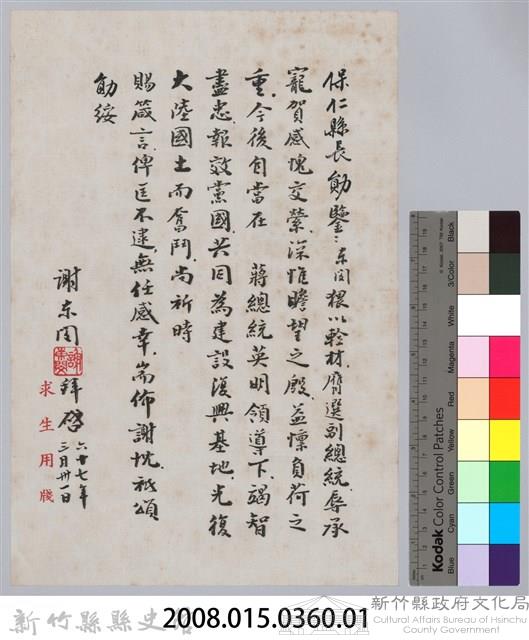 保仁縣長勛鑒：東閔猥以輇材，膺選副總統，辱承
寵賀，感愧交縈，深惟瞻望之殷，益懍負荷之
重，今後自當在　蔣總統英明領導下，竭智
盡忠，報效黨國，共同為建設復興基地，光復
大陸國土而奮鬥，尚祈時
賜箴言，俾匡不逮，無任感幸，耑佈謝忱，祗頌
勛綏
謝東閔
拜啓
六十七年
三月卅一日
求生用牋
Kodak Color Control Patches
Blue
Cyan
Green
Yellow
Red
Magenta
White
3/Color
Black
新竹縣縣史館
2008.015.0360.01
新竹縣政府文化局
Cultural Affairs Bureau of Hsinchu
County Government